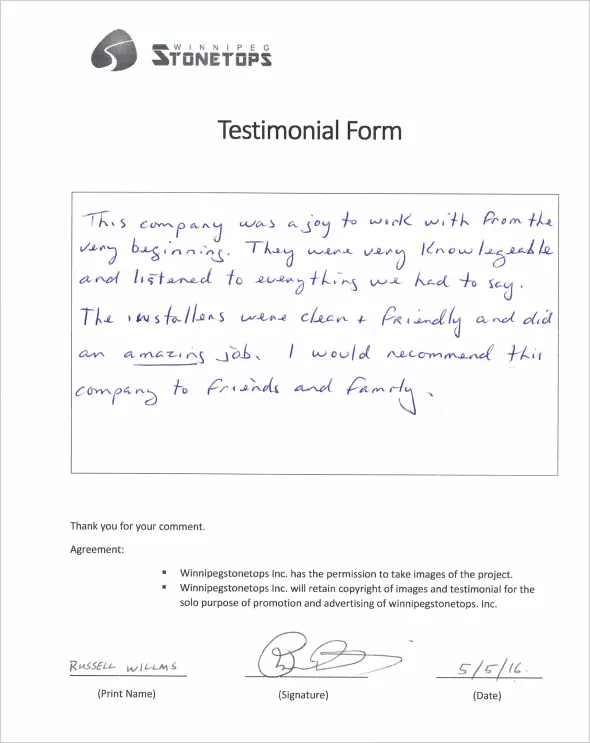 WINNIPEG
STONETOPS
Testimonial Form
This company was a joy to work with from the
very beginning. They were very knowlegeable
and listened to everything we had to say.
The installers were clean + friendly and did
an amazing job. I would recommend this
company to friends and family.
Thank you for your comment.
Agreement:
▪ Winnipegstonetops Inc. has the permission to take images of the project.
▪ Winnipegstonetops Inc. will retain copyright of images and testimonial for the
solo purpose of promotion and advertising of winnipegstonetops. Inc.
RUSSELL WILLMS 5/5/16
(Print Name) (Signature) (Date)